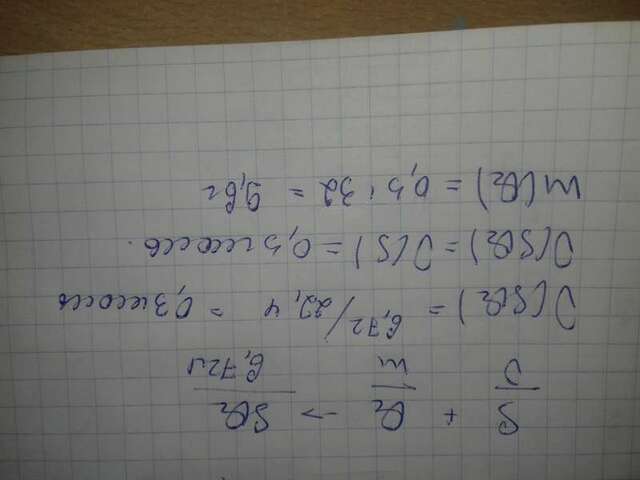 S + O₂ → SO₂
ν m 6,72л
ν(SO₂) = 6,72/22,4 = 0,3 моль
ν(SO₂) = ν(S) = 0,3 моль.
m(O₂) = 0,3 · 32 = 9,6г